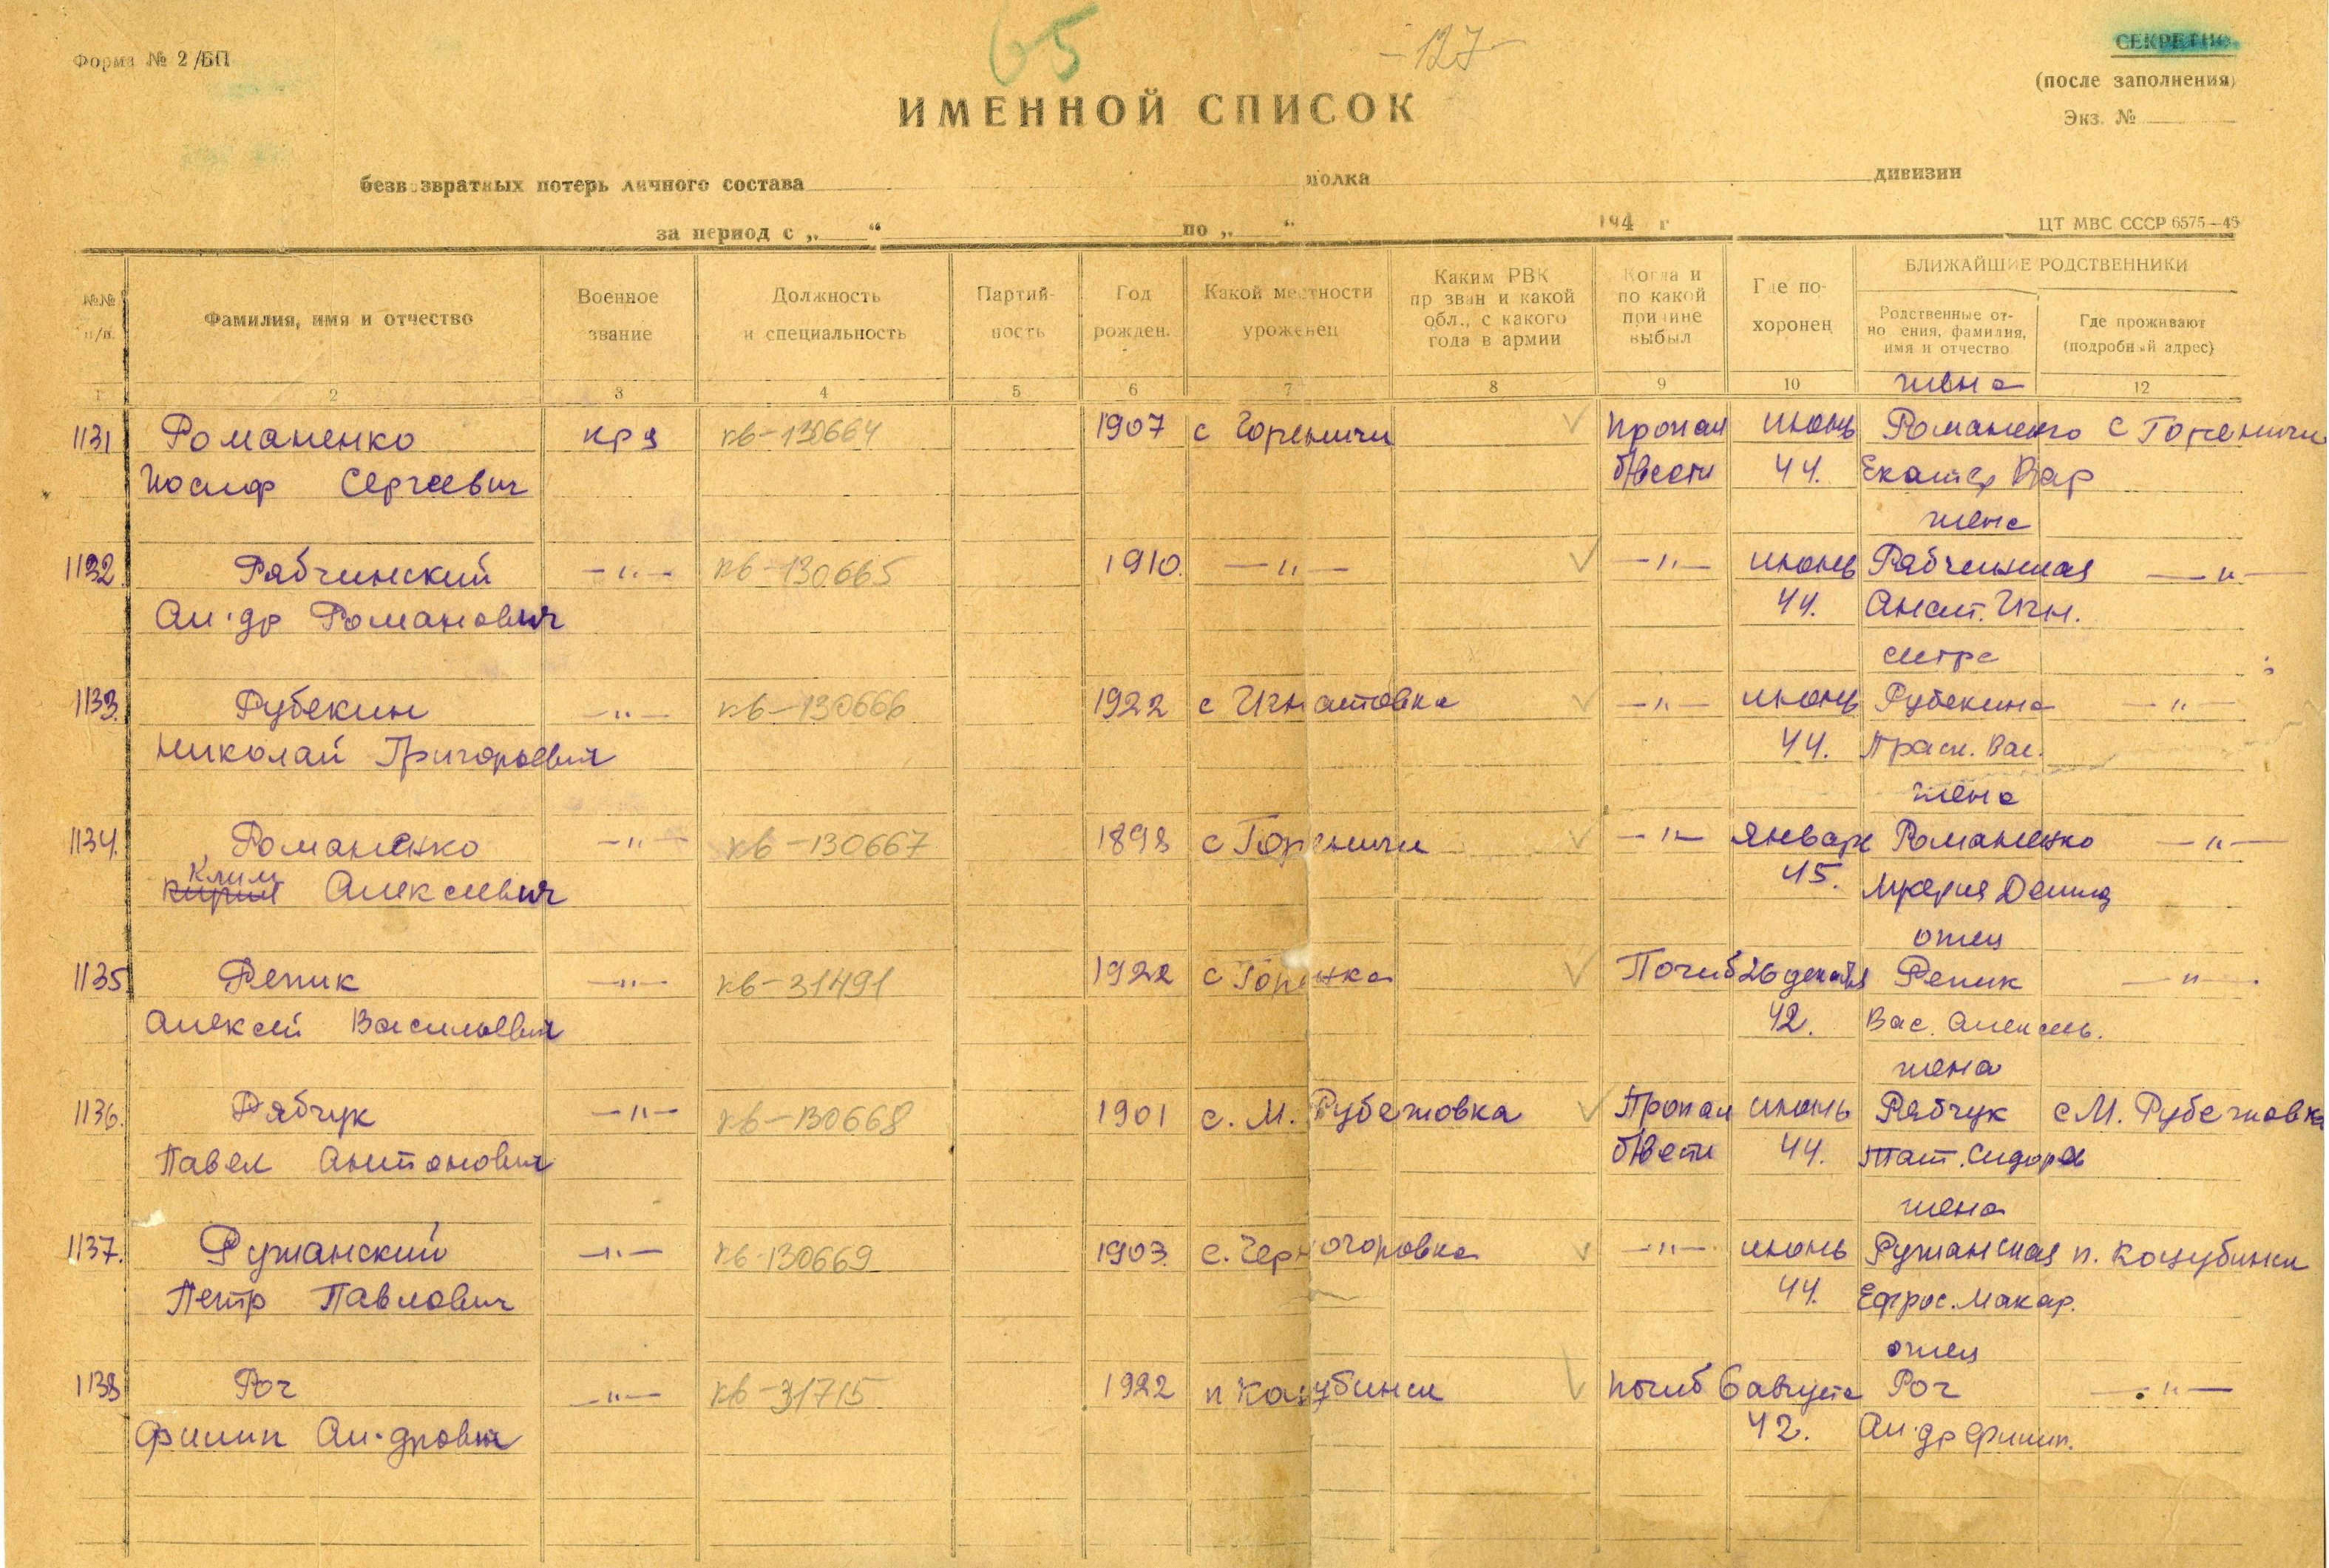 65
-127-
Форма № 2/БП
СЕКРЕТНО
(после заполнения)
Экз. №
ИМЕННОЙ СПИСОК
безвозвратных потерь личного состава полка дивизии
за период с „ “ по „ “ 194 г
ЦТ МВС СССР 6575—46
№№ п/п.
Фамилия, имя и отчество
Военное звание
Должность и специальность
Партийность
Год рожден.
Какой местности уроженец
Каким РВК призван и какой обл., с какого года в армии
Когда и по какой причине выбыл
Где похоронен
БЛИЖАЙШИЕ РОДСТВЕННИКИ
Родственные отношения, фамилия, имя и отчество
Где проживают (подробный адрес)
1 2 3 4 5 6 7 8 9 10 12
жена
1131 Романенко кр-ц кв-130664 1907 с Гореничи Пропал июнь Романенко с Гореничи
Иосиф Сергеевич б/вести 44. Екатер Вар
жена
1132. Рябчинский —"— кв-130665 1910. —"— —"— июнь Рябчинская —"—
Ал-др Романович 44. Анаст. Игн.
сестра
1133. Рубекин —"— кв-130666 1922 с Игнатовка —"— июнь Рубекина —"—
Николай Григорьевич 44. Праск. Вас.
жена
1134. Романенко —"— кв-130667 1898 с Гореничи —"— январь Романенко —"—
Клим Алексеевич 45. Демид
отец
1135 Репик —"— кв-31491 1922 с Горенка Погиб 26 декабря Репик —"—
Алексей Васильевич 42. Вас. Алексеев.
жена
1136. Рябчук —"— кв-130668 1901 с. М. Рубежовка Пропал июнь Рябчук с М. Рубежовка
Павел Антонович б/вести 44. Тат. Сидоров
жена
1137. Ружанский —"— кв-130669 1903. с. Черногоровка —"— июнь Ружанская п. Коцубинск
Петр Павлович 44. Ефрос. Макар.
отец
1138 Рог —"— кв-31715 1922 п Коцубинск погиб 6 августа Рог —"—
Филип Ал-дрович 42. Ал-др Филип.